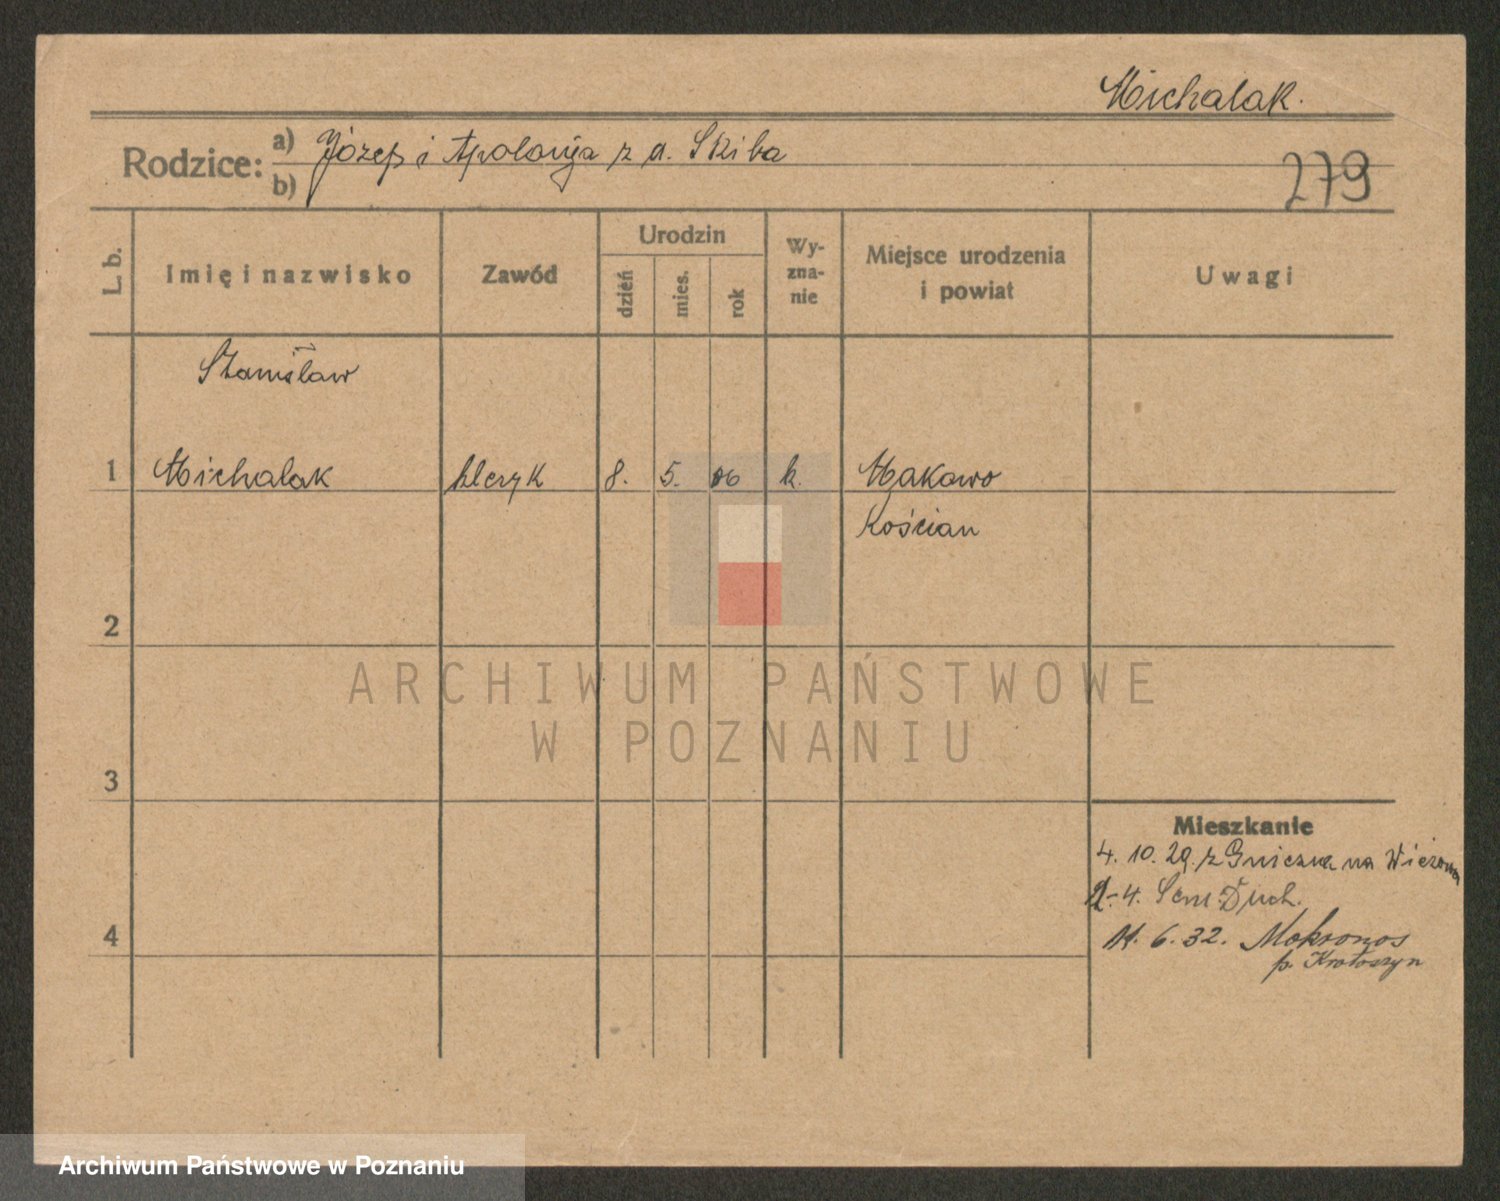 Michalak.
Rodzice: a) Józef i Apolonja z d. Skiba
b)
279
L. b.
Imię i nazwisko
Zawód
Urodzin
dzień
mies.
rok
Wy-
zna-
nie
Miejsce urodzenia
i powiat
Uwagi
Stanisław
1 Michalak kleryk 8. 5. 06 k. Makowo
Kościan
2
ARCHIWUM PAŃSTWOWE
W POZNANIU
3
Mieszkanie
4. 10. 29. z Gniezna na Wieżowa
2-4. Sem. Duch.
4
11. 6. 32. Mokronos
p. Krotoszyn
Archiwum Państwowe w Poznaniu